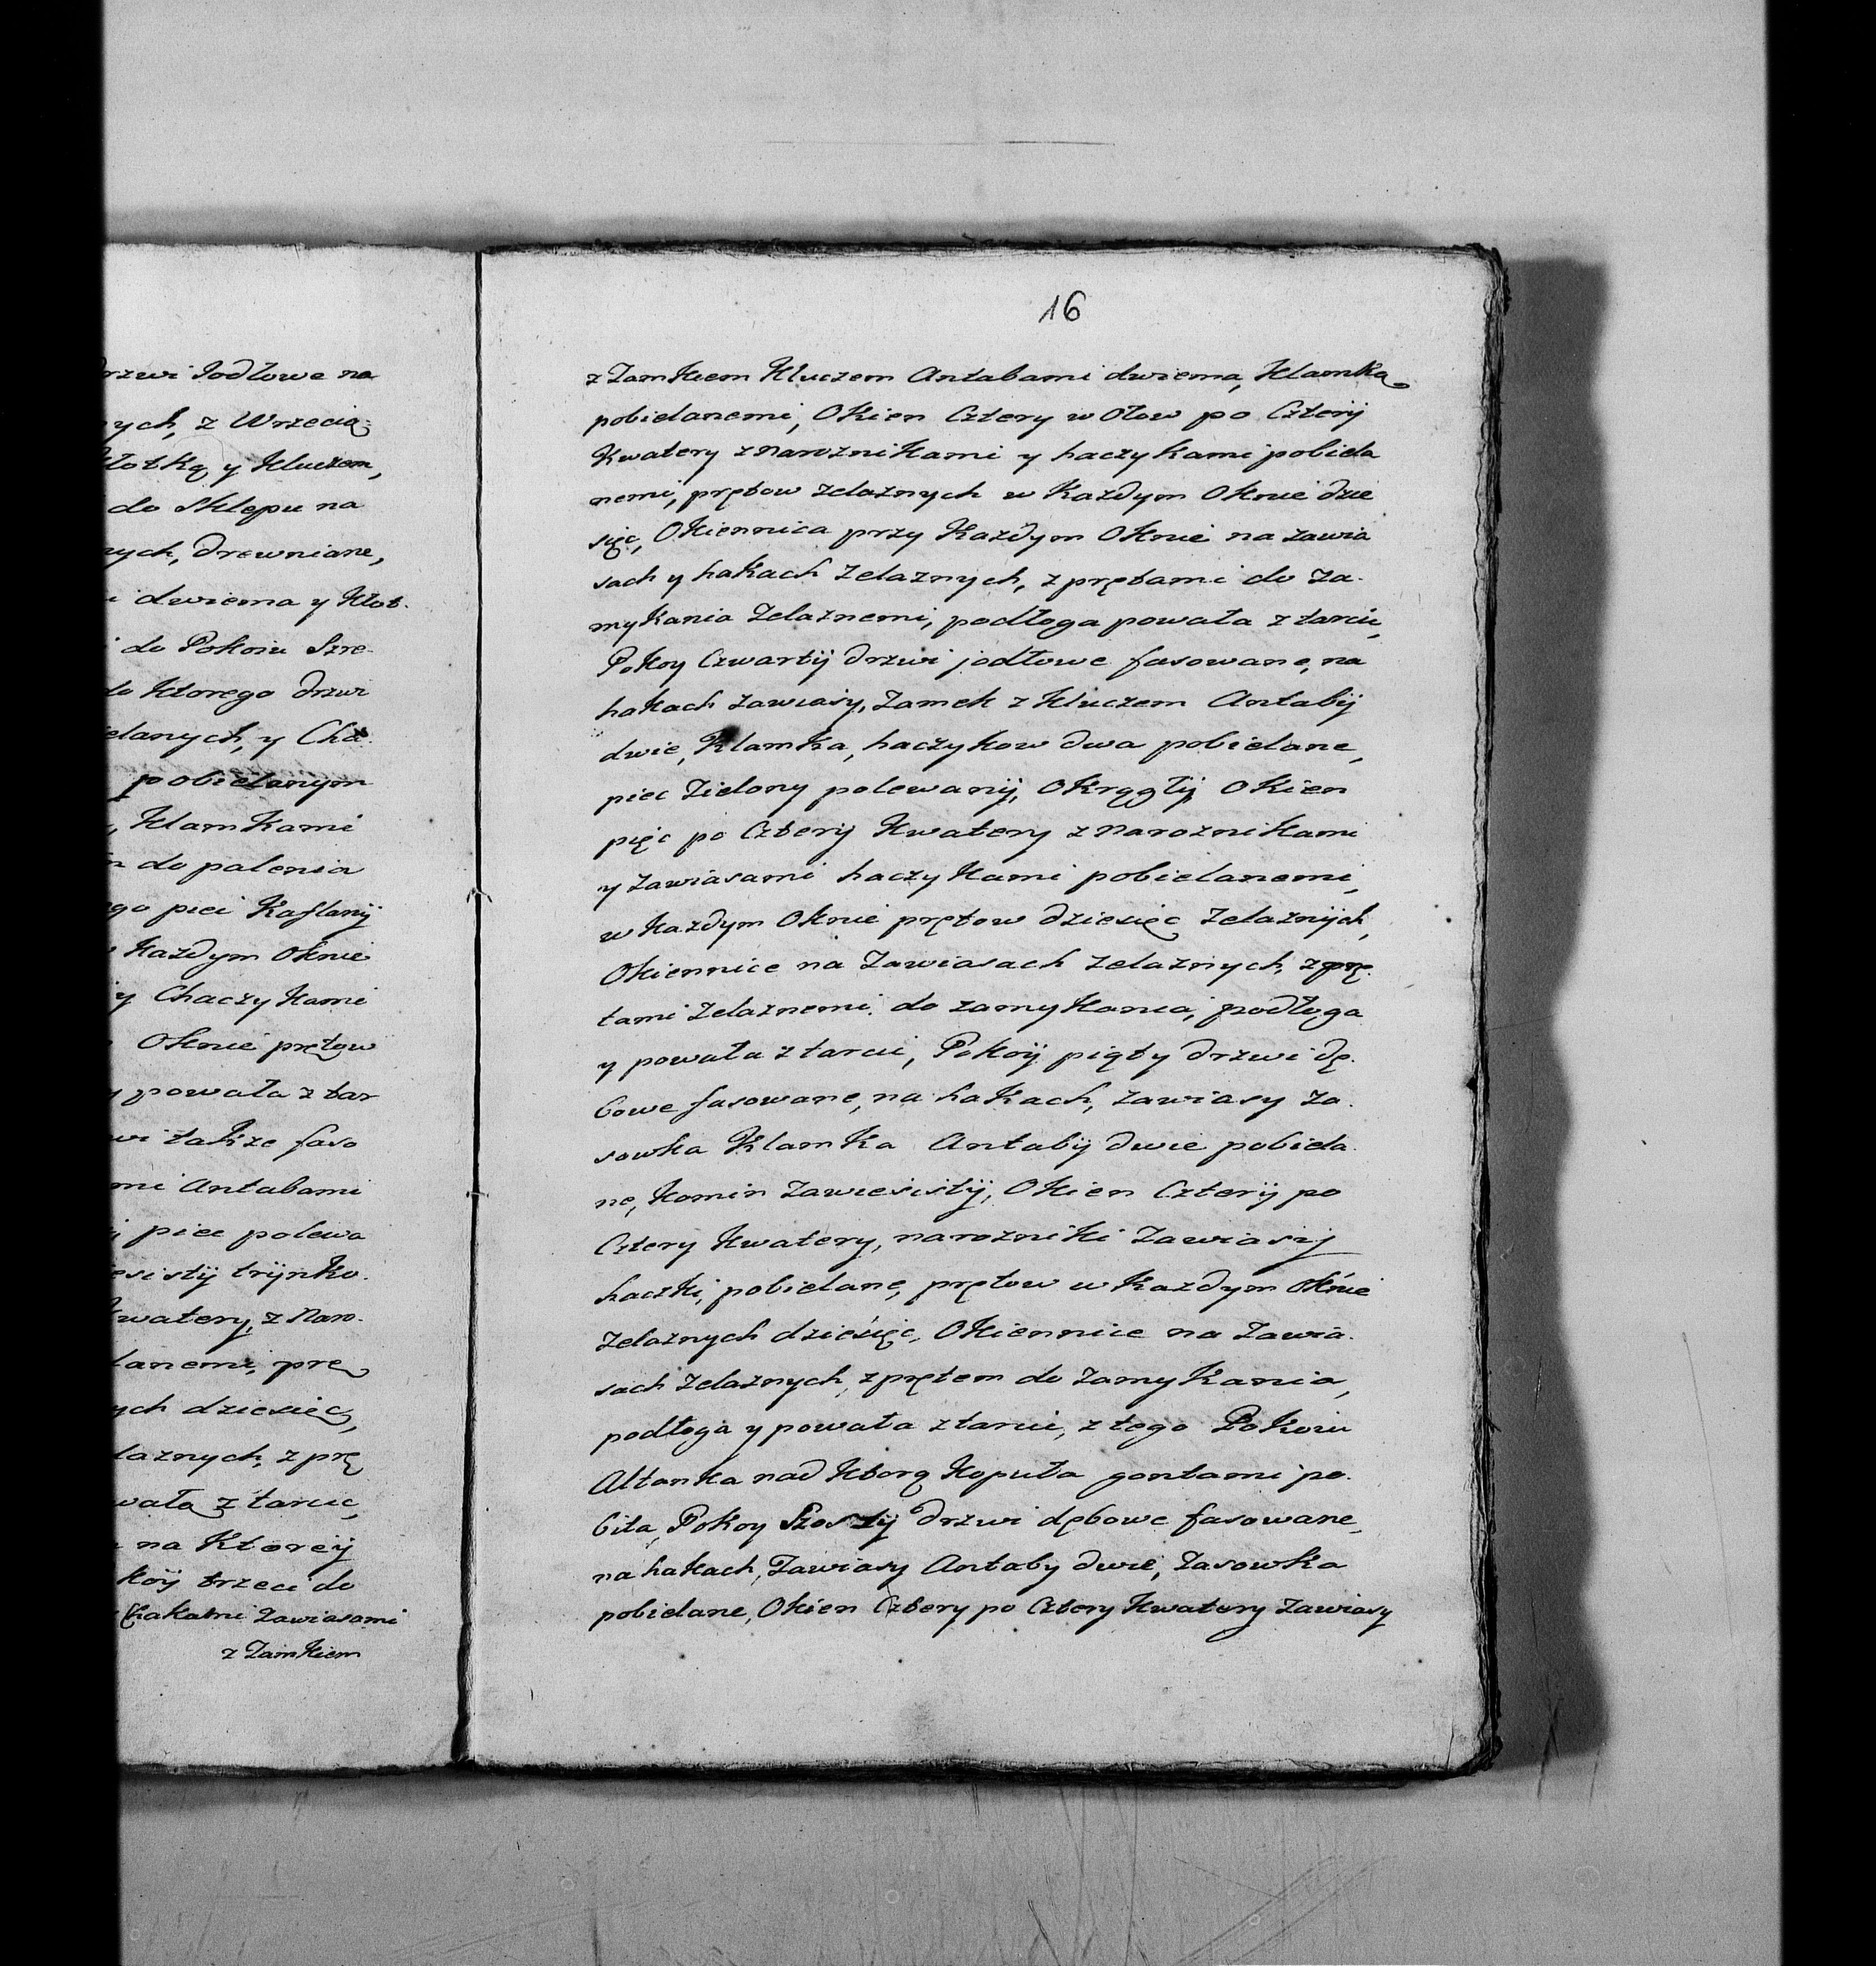 rzwi Jodłowe na
ych, z Wrzecią-
łotką y Kluczem,
do Sklepu na
nych, drewniane,
i dwiema y Kłot.
i do Pokoiu Szre-
do Ktorego drzwi
elanych, y Cha.
pobielanym
, Klamkami
do palenia
go piec Kaflanÿ
Każdym Oknie
y Chaczykami
Oknie prętow
y powała z tar
wi takze faso
mi Antabami
piec polewa
esistÿ trÿnko.
watery, z Naro-
lanemi, prę
ych dziesięc,
laznych, z prę
wała z tarcic,
na Ktoreÿ
koÿ trzeci do
hakami Zawiasami
z Zamkiem
16
z Zamkiem Kluczem Antabami dwiema, Klamką
pobielanemi, Okien Cztery w Ołow po Czterÿ
Kwatery z Naroznikami y haczykami pobiela
nemi, prętow zelaznych w Kazdym Oknie dzie
sięc, Okiennica przy Kazdym Oknie na zawia
sach y hakach Zelaznych, z prętami do Za-
mykania Zelaznemi, podłoga powała z tarcic,
Pokoy Czwartÿ drzwi jodłowe fasowane, na
hakach zawiasy, Zamek z Kluczem Antabÿ
dwie, Klamka, haczykow dwa pobielane,
piec Zielony polewanÿ, Okrągłÿ Okien
pięc po Czterÿ Kwatery z Naroznikami
y Zawiasami haczykami pobielanemi,
w Kazdym Oknie prętow dziesięc Zelaznÿch,
Okiennice na Zawiasach zelaznych, z prę-
tami Zelaznemi do zamykania, podłoga
y powała z tarcic, Pokoÿ piąty drzwi dę-
bowe fasowane, na hakach, zawiasy Za-
sowka Klamka Antabÿ dwie pobiela-
ne, Komin Zawiesistÿ, Okien Czterÿ po
Cztery Kwatery, narozniki Zawiasÿ
haczki, pobielane, prętow w Kazdym Oknie
Zelaznych dzieśięc, Okiennice na Zawia-
sach Zelaznych, z prętem do Zamykania,
podłoga y powała z tarcic, z tego Pokoiu
Altanka nad Ktorą Kopuła gontami po-
bita, Pokoy Szostÿ drzwi dębowe fasowane,
na hakach, Zawiasy Antaby dwie, Zasowka
pobielane, Okien Cztery po Cztery Kwatery Zawiasy